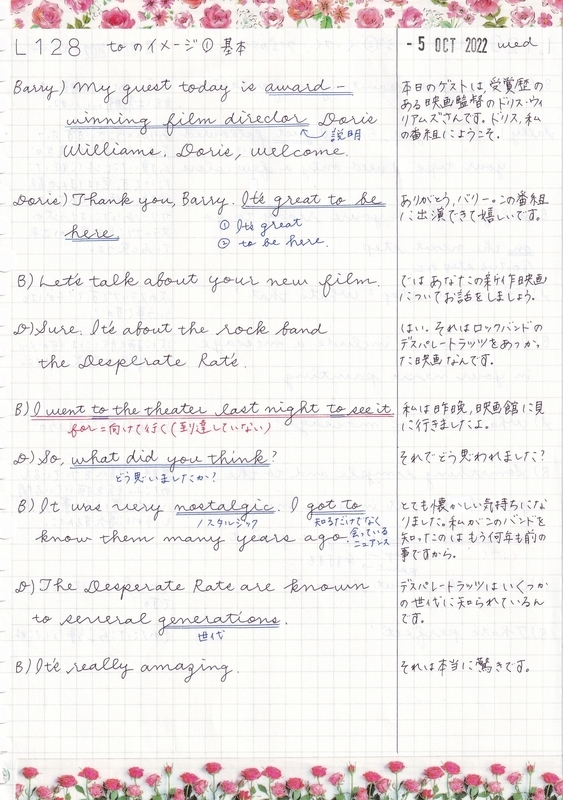 L128 toのイメージ① 基本
- 5 OCT 2022 wed
Barry) My guest today is award -
winning film director Doris
説明
Williams. Doris, welcome.
本日のゲストは、受賞歴の
ある映画監督のドリス・ウィ
リアムズさんです。ドリス、私
の番組にようこそ。
Doris) Thank you, Barry. It's great to be
here.
① It's great
② to be here.
ありがとう、バリー。この番組
に出演できて嬉しいです。
B) Let's talk about your new film.
では あなたの新作映画
についてお話をしましょう。
D) Sure. It's about the rock band
the Desperate Rats.
はい。それはロックバンドの
デスパレートラッツをあつかっ
た映画なんです。
B) I went to the theater last night to see it
for = 向けて行く (到達していない)
私は昨晩、映画館に見
に行きましたよ。
D) So, what did you think?
どう思いましたか?
それでどう思われました?
B) It was very nostalgic. I got to
ノスタルジック
知るだけでなく
know them many years ago.
会っている
ニュアンス
とても懐かしい気持ちにな
りました。私がこのバンドを
知ったのは もう何年も前の
事ですから。
D) The Desperate Rats are known
to several generations.
世代
デスパレートラッツはいくつか
の世代に知られているん
です。
B) It's really amazing.
それは本当に驚きです。